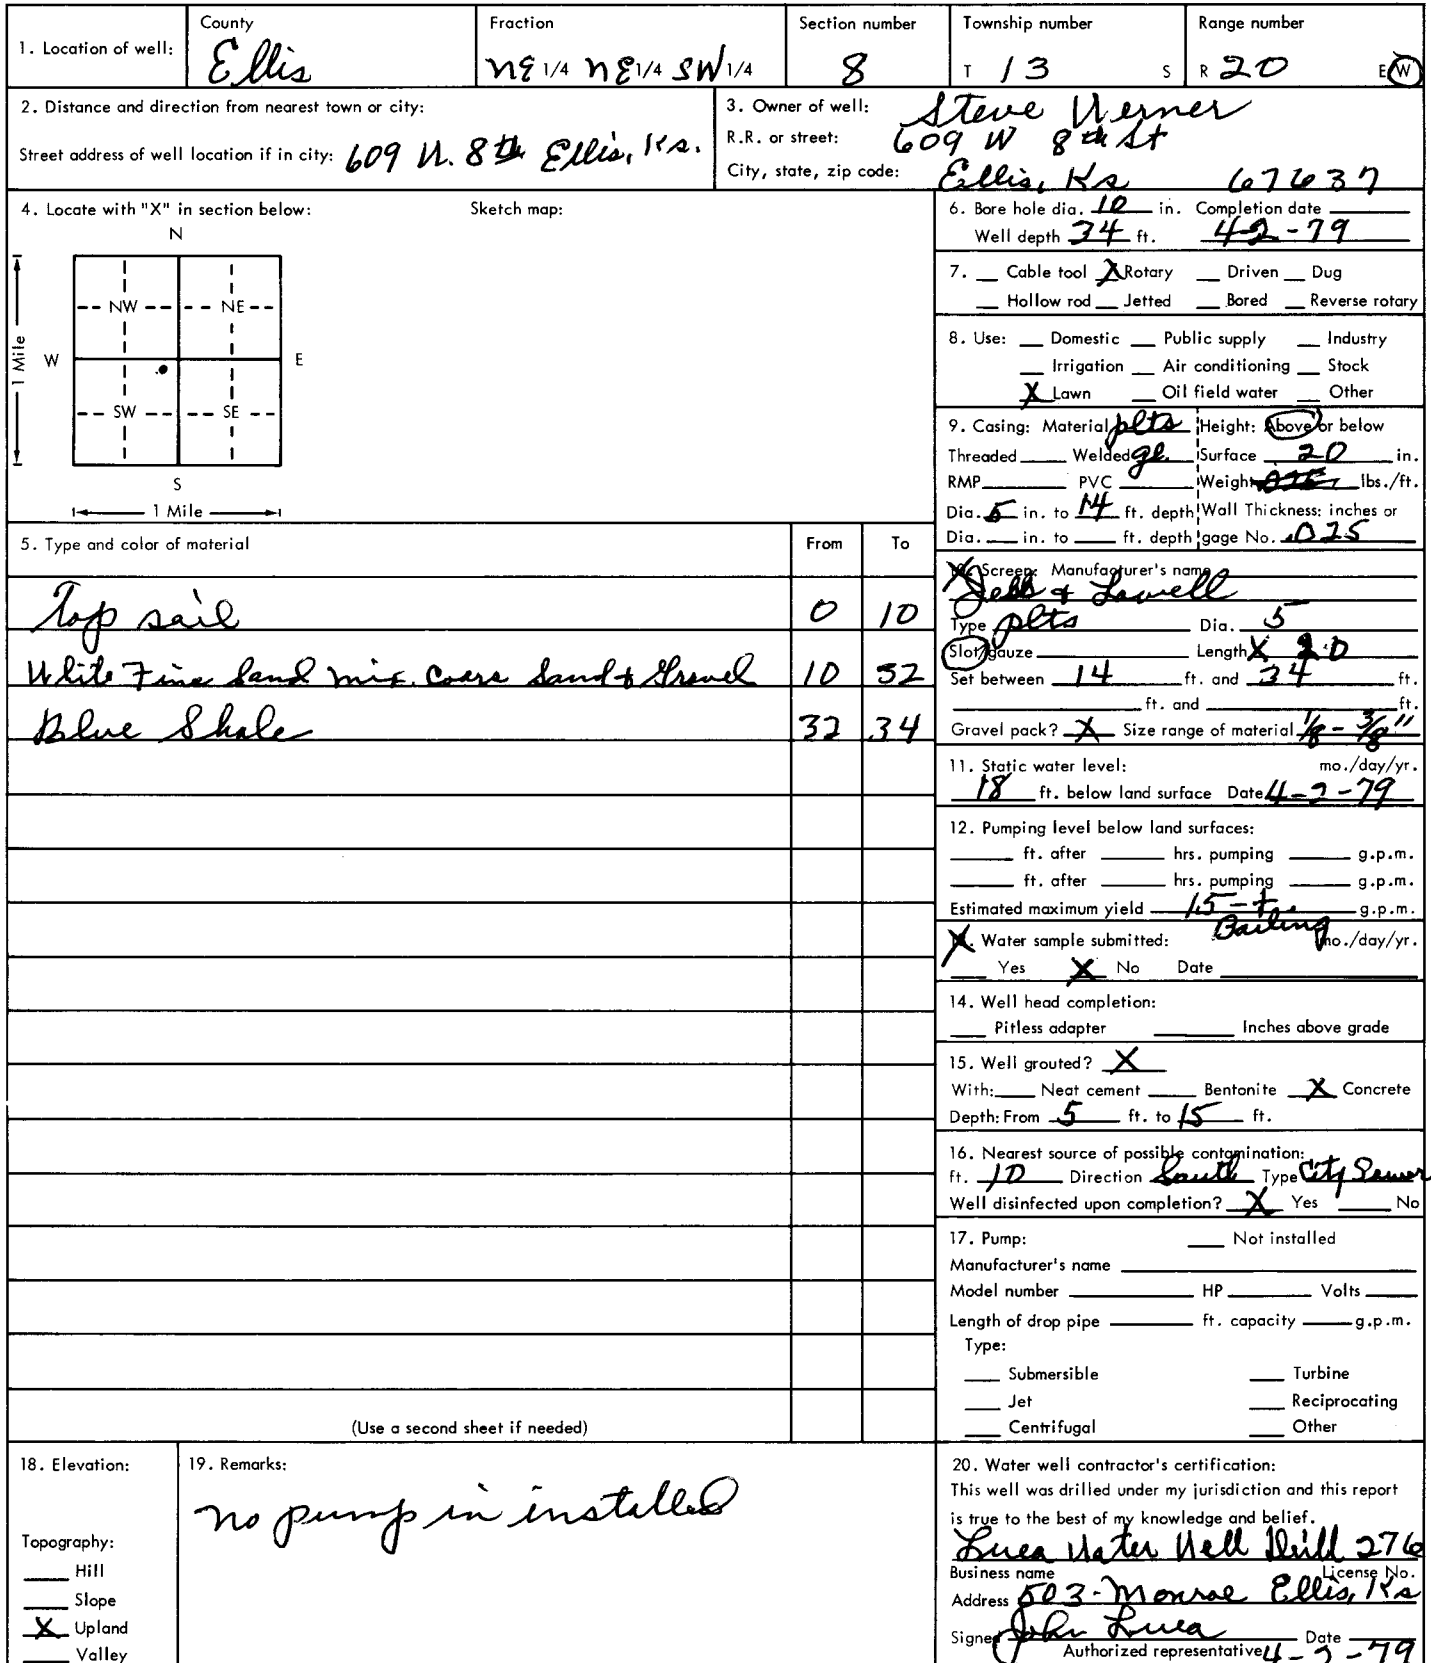 1. Location of well:
County
Ellis
Fraction
NE 1/4 NE 1/4 SW 1/4
Section number
8
Township number
T 13 S
Range number
R 20 E W
2. Distance and direction from nearest town or city:
Street address of well location if in city: 609 W. 8th Ellis, Ks.
3. Owner of well: Steve Werner
R.R. or street: 609 W 8th St
City, state, zip code: Ellis, Ks 67637
4. Locate with "X" in section below:
Sketch map:
N
NW NE
W E
1 Mile
SW SE
S
1 Mile
5. Type and color of material From To
Top sail 0 10
White Fine Sand mix. Coars Sand & Gravel 10 32
Blue Shale 32 34
(Use a second sheet if needed)
6. Bore hole dia. 10 in. Completion date
Well depth 34 ft. 4-2-79
7. Cable tool X Rotary Driven Dug
Hollow rod Jetted Bored Reverse rotary
8. Use: Domestic Public supply Industry
Irrigation Air conditioning Stock
X Lawn Oil field water Other
9. Casing: Material plts Height: Above or below
Threaded Welded gl. Surface 20 in.
RMP PVC Weight lbs./ft.
Dia. 5 in. to 14 ft. depth Wall Thickness: inches or
Dia. in. to ft. depth gage No. .025
10. Screen: Manufacturer's name
& Lowell
Type plts Dia. 5
Slot/gauze Length X 20
Set between 14 ft. and 34 ft.
ft. and ft.
Gravel pack? X Size range of material 1/8 - 3/8"
11. Static water level: mo./day/yr.
18 ft. below land surface Date 4-2-79
12. Pumping level below land surfaces:
ft. after hrs. pumping g.p.m.
ft. after hrs. pumping g.p.m.
Estimated maximum yield 15-+ g.p.m.
Bailing
Water sample submitted: mo./day/yr.
Yes X No Date
14. Well head completion:
Pitless adapter Inches above grade
15. Well grouted? X
With: Neat cement Bentonite X Concrete
Depth: From 5 ft. to 15 ft.
16. Nearest source of possible contamination:
ft. 10 Direction South Type City Sewer
Well disinfected upon completion? X Yes No
17. Pump: Not installed
Manufacturer's name
Model number HP Volts
Length of drop pipe ft. capacity g.p.m.
Type:
Submersible Turbine
Jet Reciprocating
Centrifugal Other
18. Elevation:
Topography:
Hill
Slope
X Upland
Valley
19. Remarks:
no pump in installed
20. Water well contractor's certification:
This well was drilled under my jurisdiction and this report
is true to the best of my knowledge and belief.
Luea Water Well Drill 276
Business name License No.
Address 503-Monroe Ellis, Ks
Signed John Luea Date
Authorized representative 4-2-79